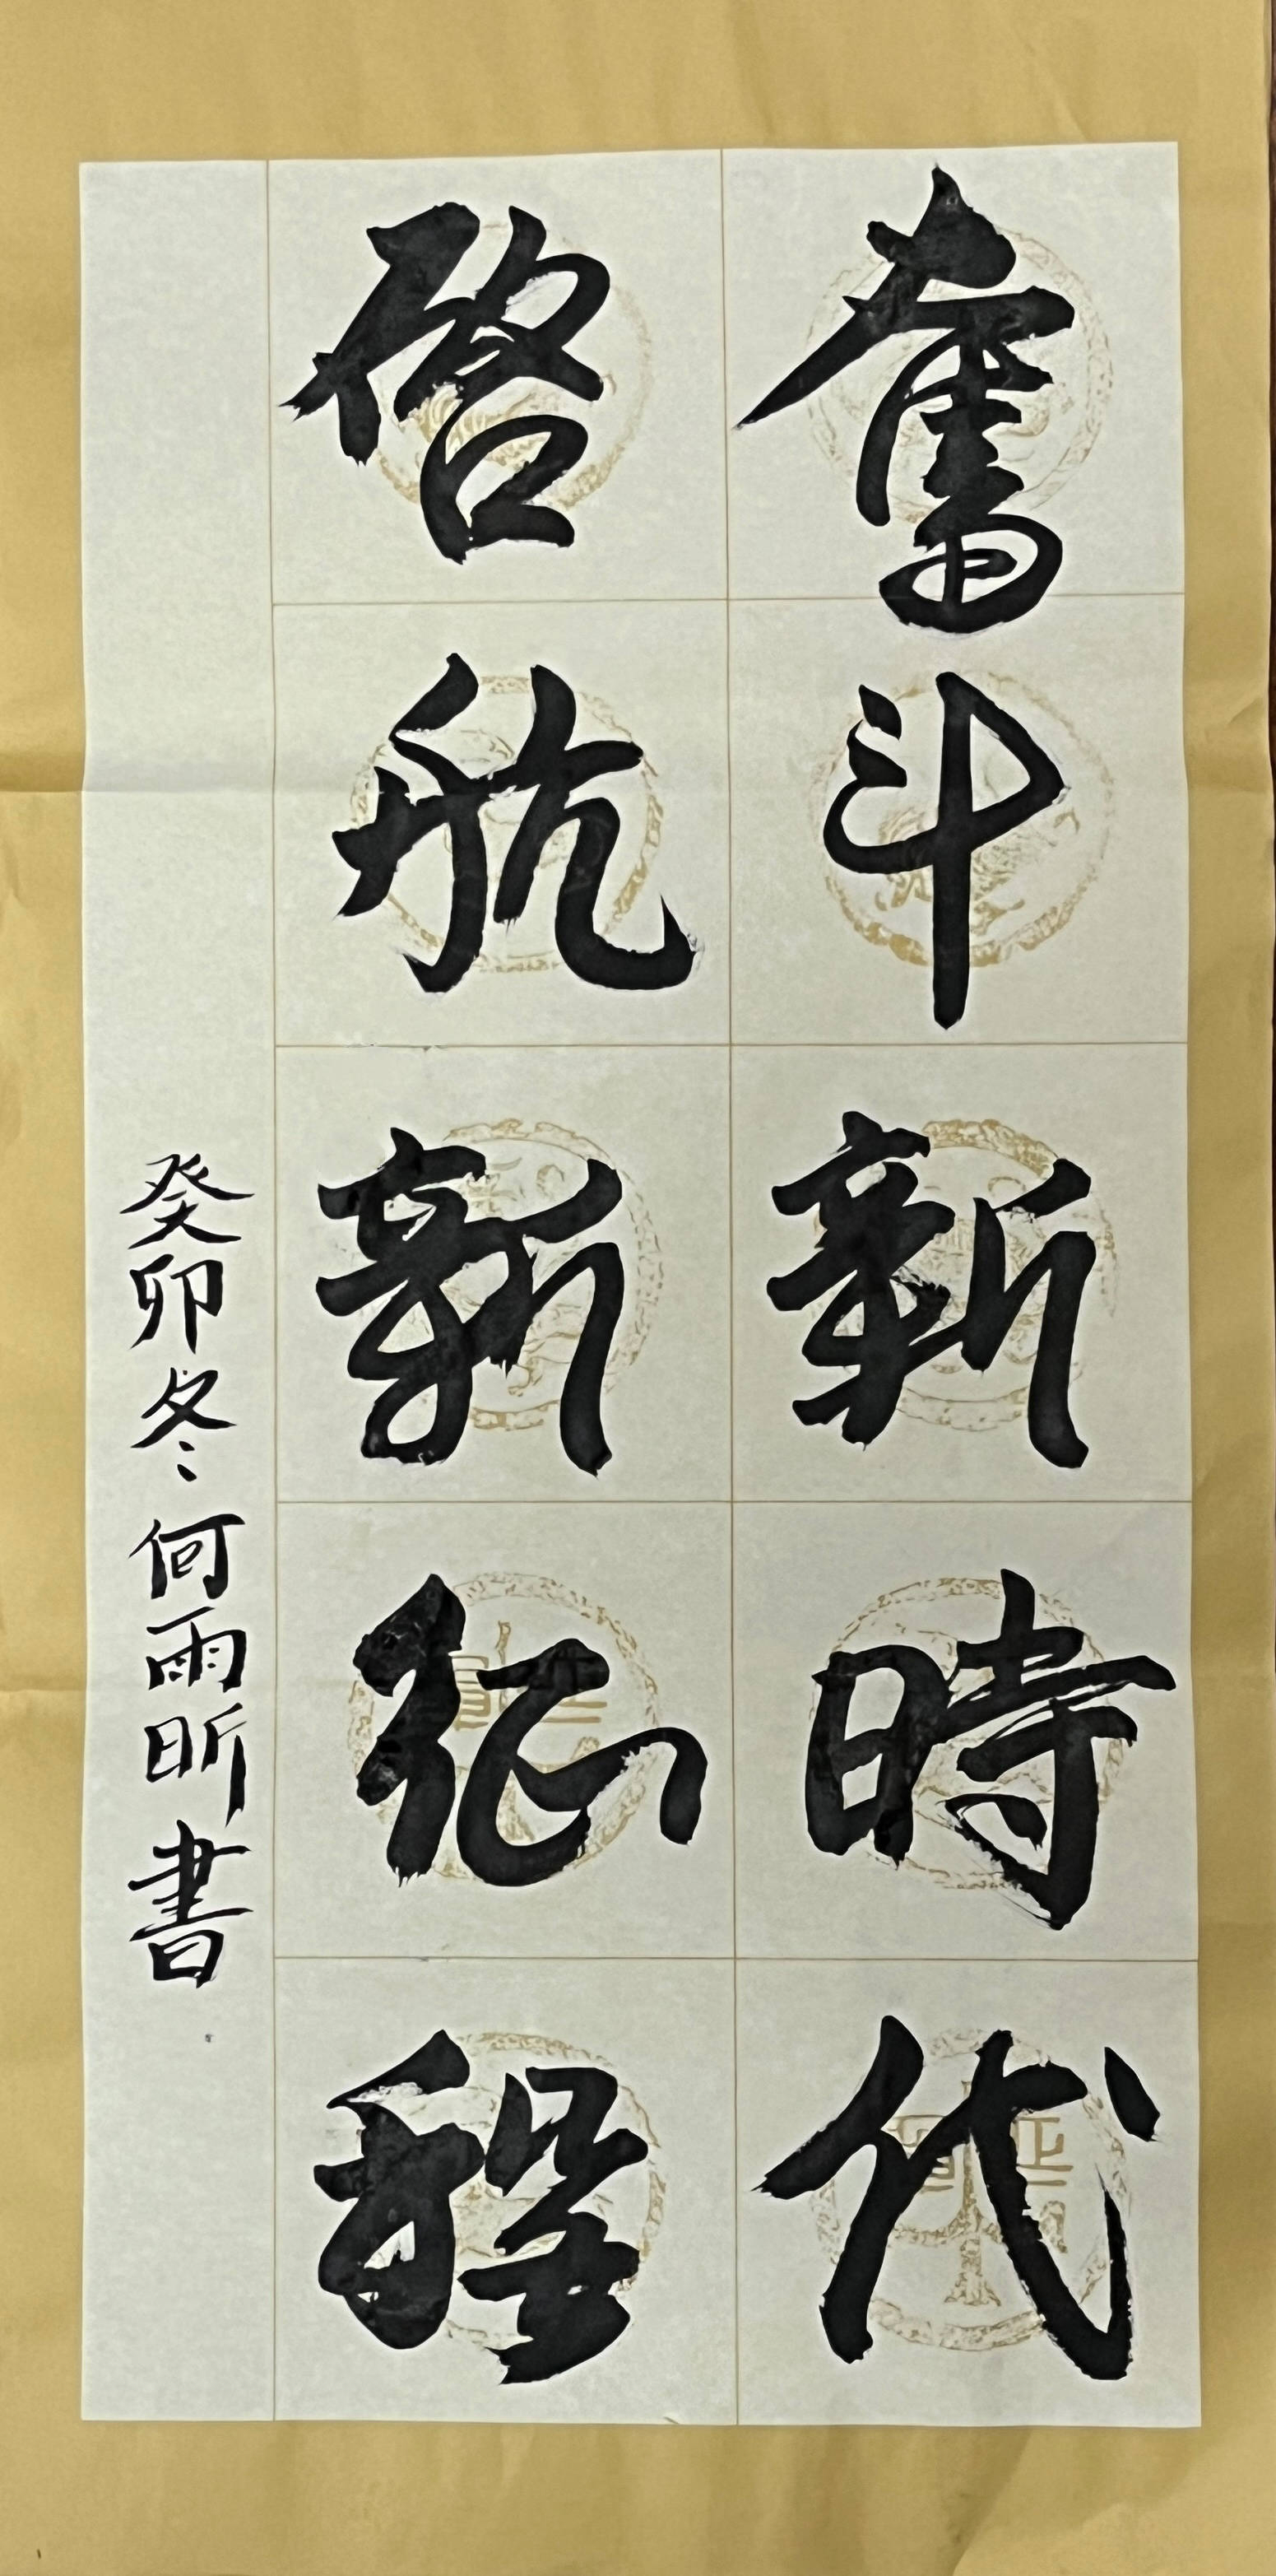 奮斗新時代
啓航新征程
癸卯冬何雨昕書